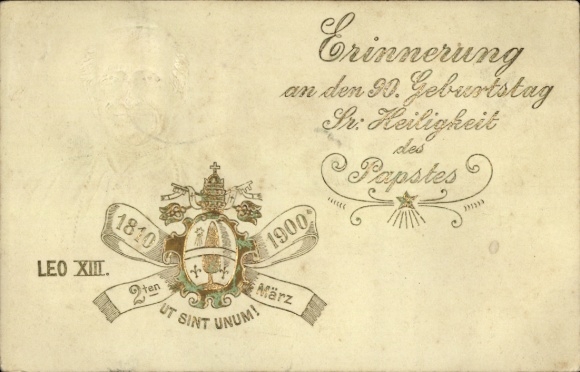 Erinnerung
an den 90. Geburtstag
Sr: Heiligkeit
des
Papstes
1810 1900
LEO XIII.
2ten März
UT SINT UNUM!